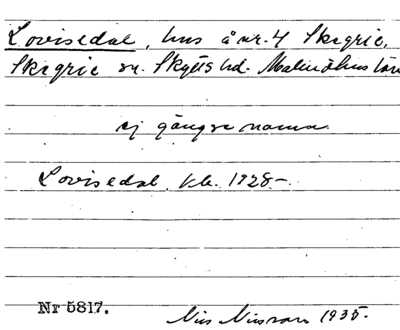 Lovisedal, hus å nr. 4 Skegrie,
Skegrie sn. Skytts hd. Malmöhus län
ej gängse namn.
Lovisedal. kb. 1928.-
Nr 5817.
Nils Nilsson 1935.